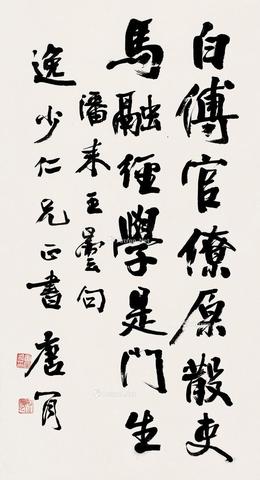 白傅官僚原散吏
馬融經學是門生
潘耒王曇句
逸少仁兄正書 唐肎